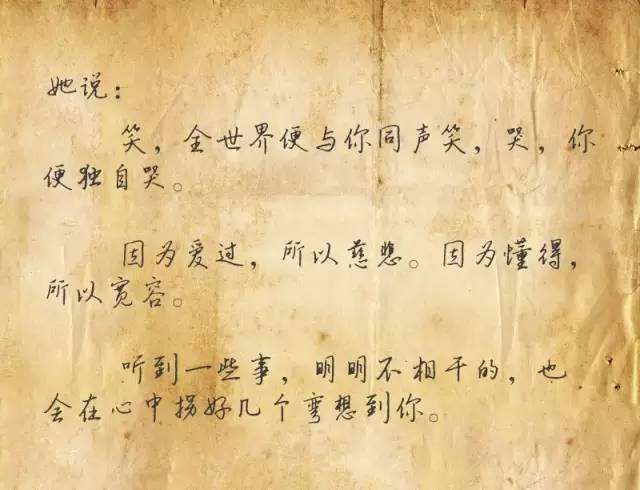 她说：
笑，全世界便与你同声笑，哭，你
便独自哭。
因为爱过，所以慈悲。因为懂得，
所以宽容。
听到一些事，明明不相干的，也
会在心中拐好几个弯想到你。